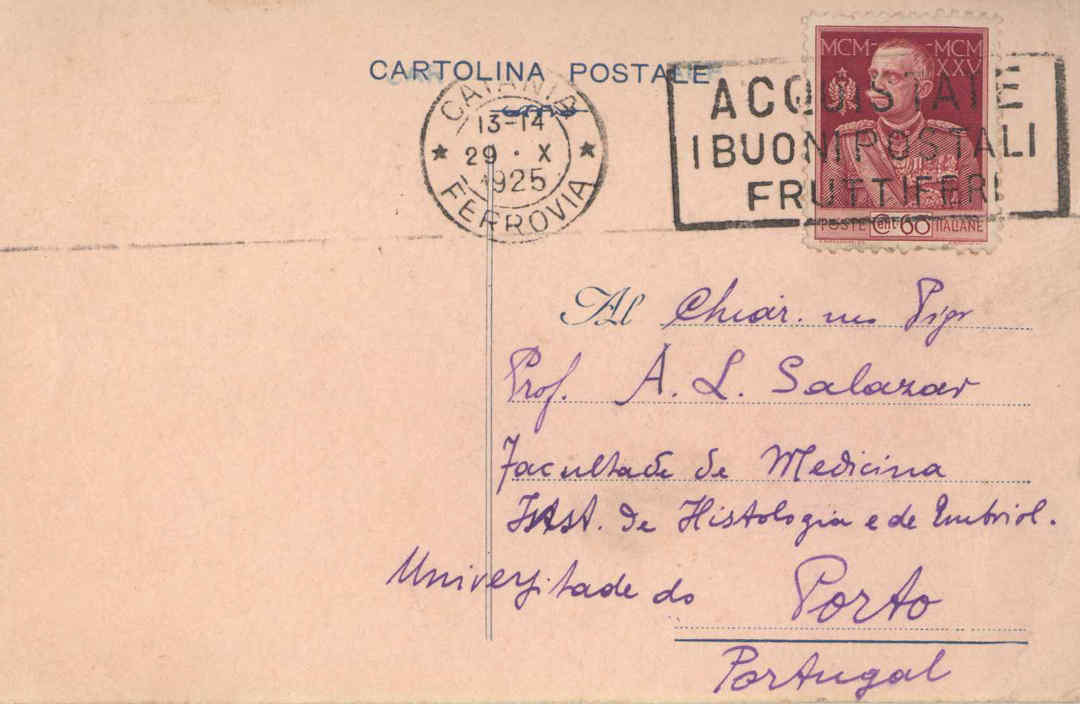 CARTOLINA POSTALE
CATANIA
13-14
29 · X
1925
FERROVIA
ACQUISTATE
I BUONI POSTALI
FRUTTIFERI
MCM- -MCM
XXV
POSTE Cent. 60 ITALIANE
Al Chiar. mo
Prof. A. L. Salazar
Facultade de Medicina
Inst. de Histologia e de Embriol.
Universitade do Porto
Portugal